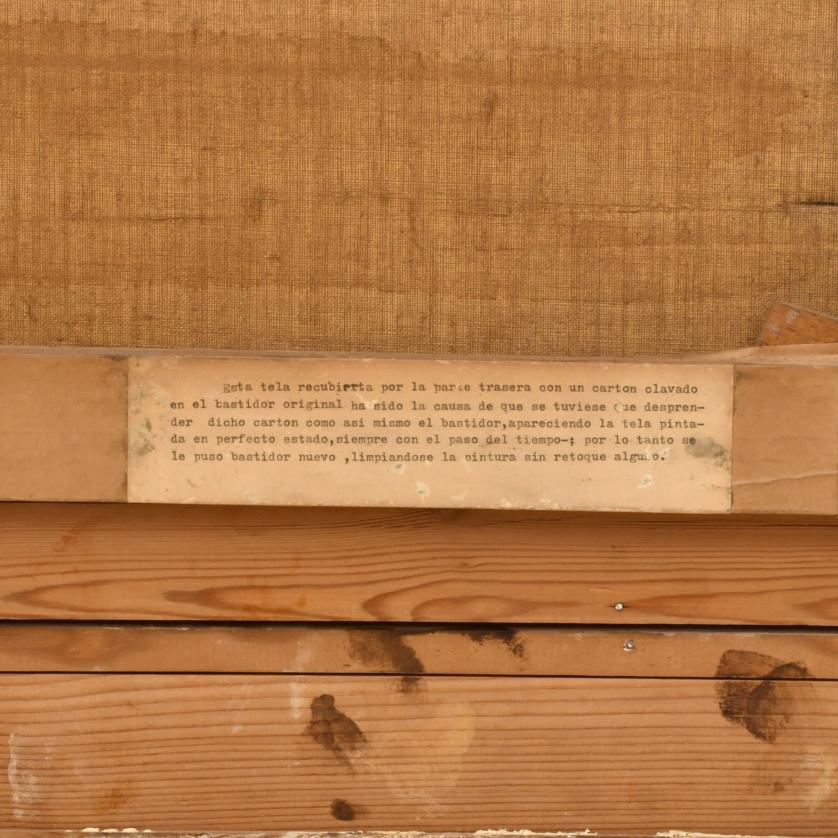 Esta tela recubierta por la parte trasera con un carton clavado
en el bastidor original ha sido la causa de que se tuviese que despren-
der dicho carton como asi mismo el bastidor,apareciendo la tela pinta-
da en perfecto estado,siempre con el paso del tiempo-; por lo tanto se
le puso bastidor nuevo ,limpiandose la pintura sin retoque alguno.